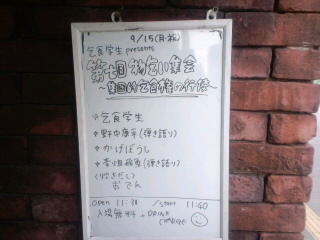 9/15(月・祝)
乞食学生 presents
第七回 物乞い集会
〜集団的乞食権の行使〜
乞食学生
野中康平(弾き語り)
かげぼうし
(弾き語り)
(炊きだし)
おでん
open 11:30 / start 11:40
入場無料 + DRINK
CHARGE